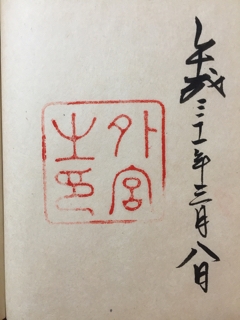 平成三十一年三月八日
外宮
之印